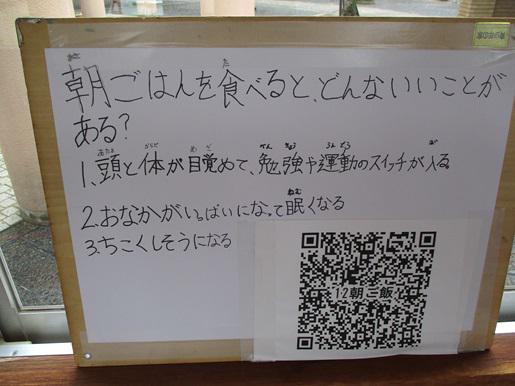 朝ごはんを食べると、どんないいことが
ある?
1、頭と体が目覚めて、勉強や運動のスイッチが入る
2.おなかがいっぱいになって眠くなる
3.ちこくしそうになる
12朝ご飯